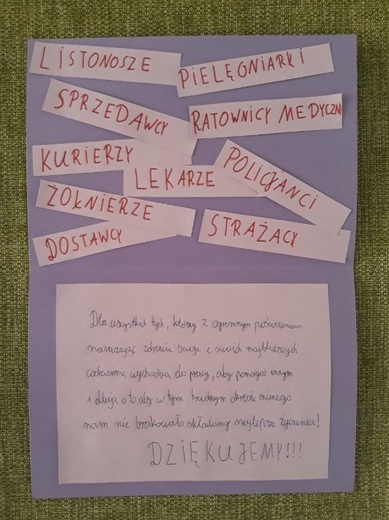 LISTONOSZE
PIELĘGNIARKI
SPRZEDAWCY
RATOWNICY MEDYCZNI
KURIERZY
LEKARZE
POLICJANCI
ŻOŁNIERZE
STRAŻACY
DOSTAWCY
Dla wszystkich tych, którzy z ogromnym poświęceniem
narażając zdrowie swoje i swoich najbliższych
codziennie wychodzą do pracy, aby pomagać innym
i dbają o to aby w tym trudnym okresie niczego
nam nie brakowało składamy najlepsze życzenia!
DZIĘKUJEMY!!!